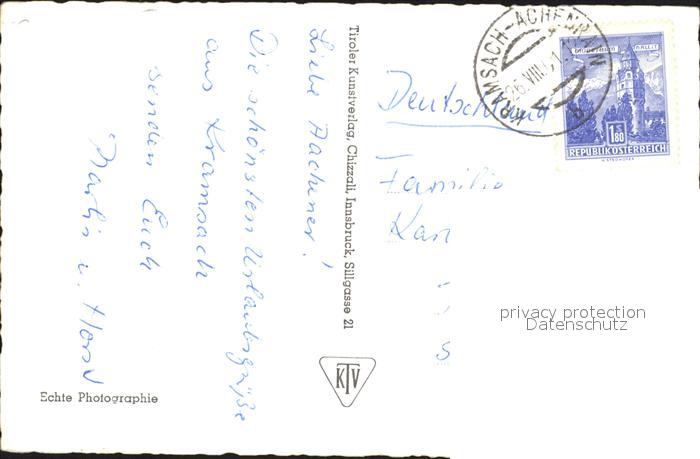 Liebe Aachener!
Die schönsten Urlaubsgrüße
aus Kramsach
senden Euch
u. Horst
Tiroler Kunstverlag, Chizzali, Innsbruck, Sillgasse 21
KTV
Echte Photographie
Deutschland
Familie
Kar
S
KRAMSACH-ACHENRAIN
26.VIII.
b
1.80
REPUBLIK ÖSTERREICH
privacy protection
Datenschutz